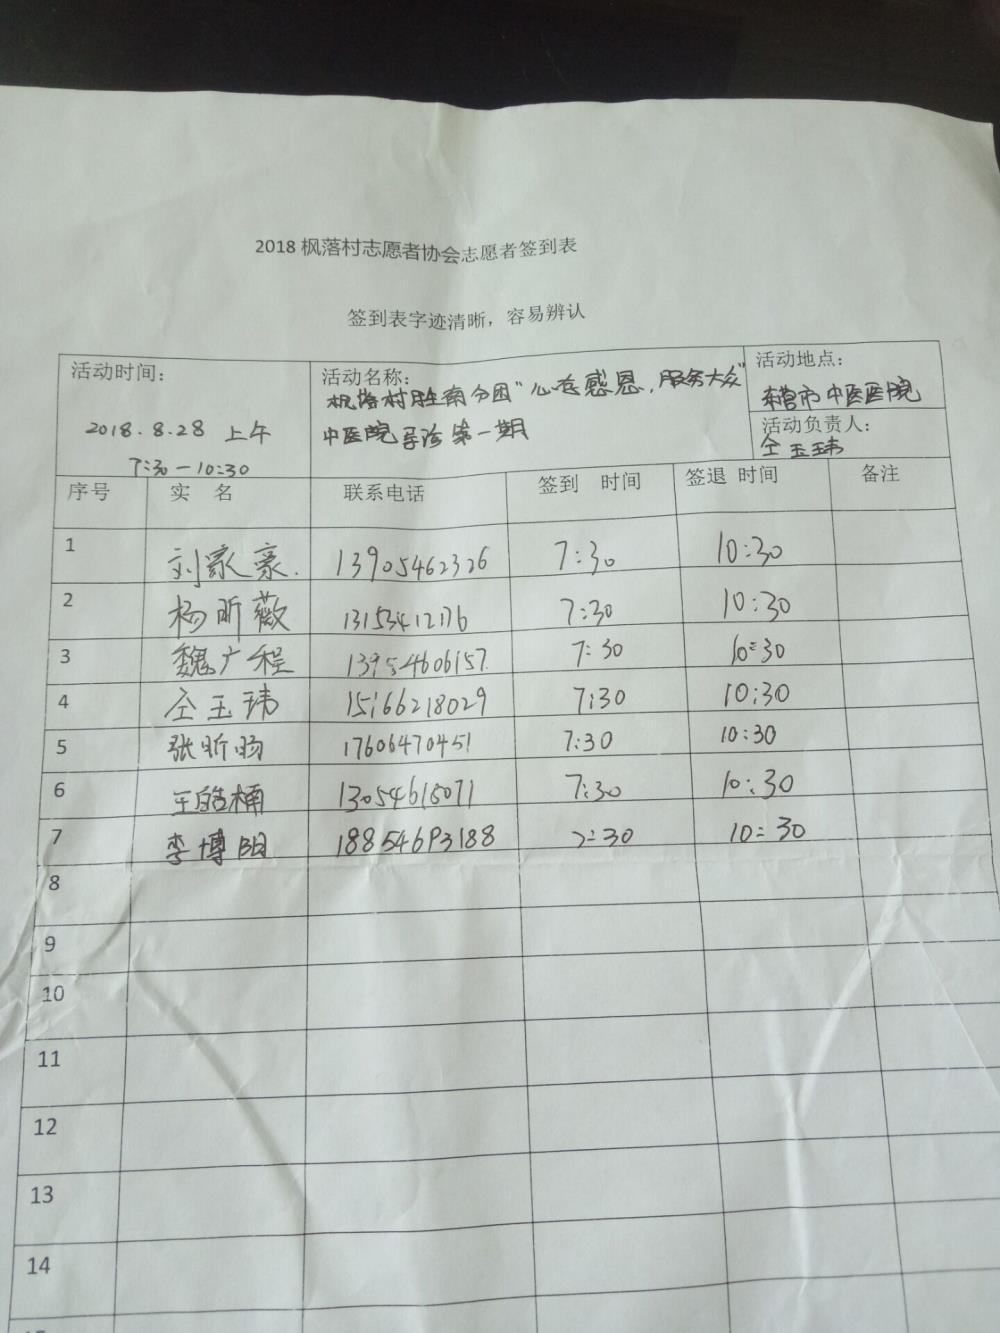 2018 枫落村志愿者协会志愿者签到表
签到表字迹清晰，容易辨认
活动时间：
2018.8.28 上午
7:30-10:30
活动名称：
枫落村胜南分团“心存感恩，服务大众”
中医院导诊第一期
活动地点：
东营市中医医院
活动负责人：
仝玉玮
序号 实 名 联系电话 签到 时间 签退 时间 备注
1 刘家豪. 13905462326 7:30 10:30
2 杨昕薇 7:30 10:30
3 魏广程 13954606157 7:30 10:30
4 仝玉玮 15166218029 7:30 10:30
5 张昕旸 17606470451 7:30 10:30
6 王皓楠 13054615071 7:30 10:30
7 李博阳 18854693188 7:30 10:30
8
9
10
11
12
13
14